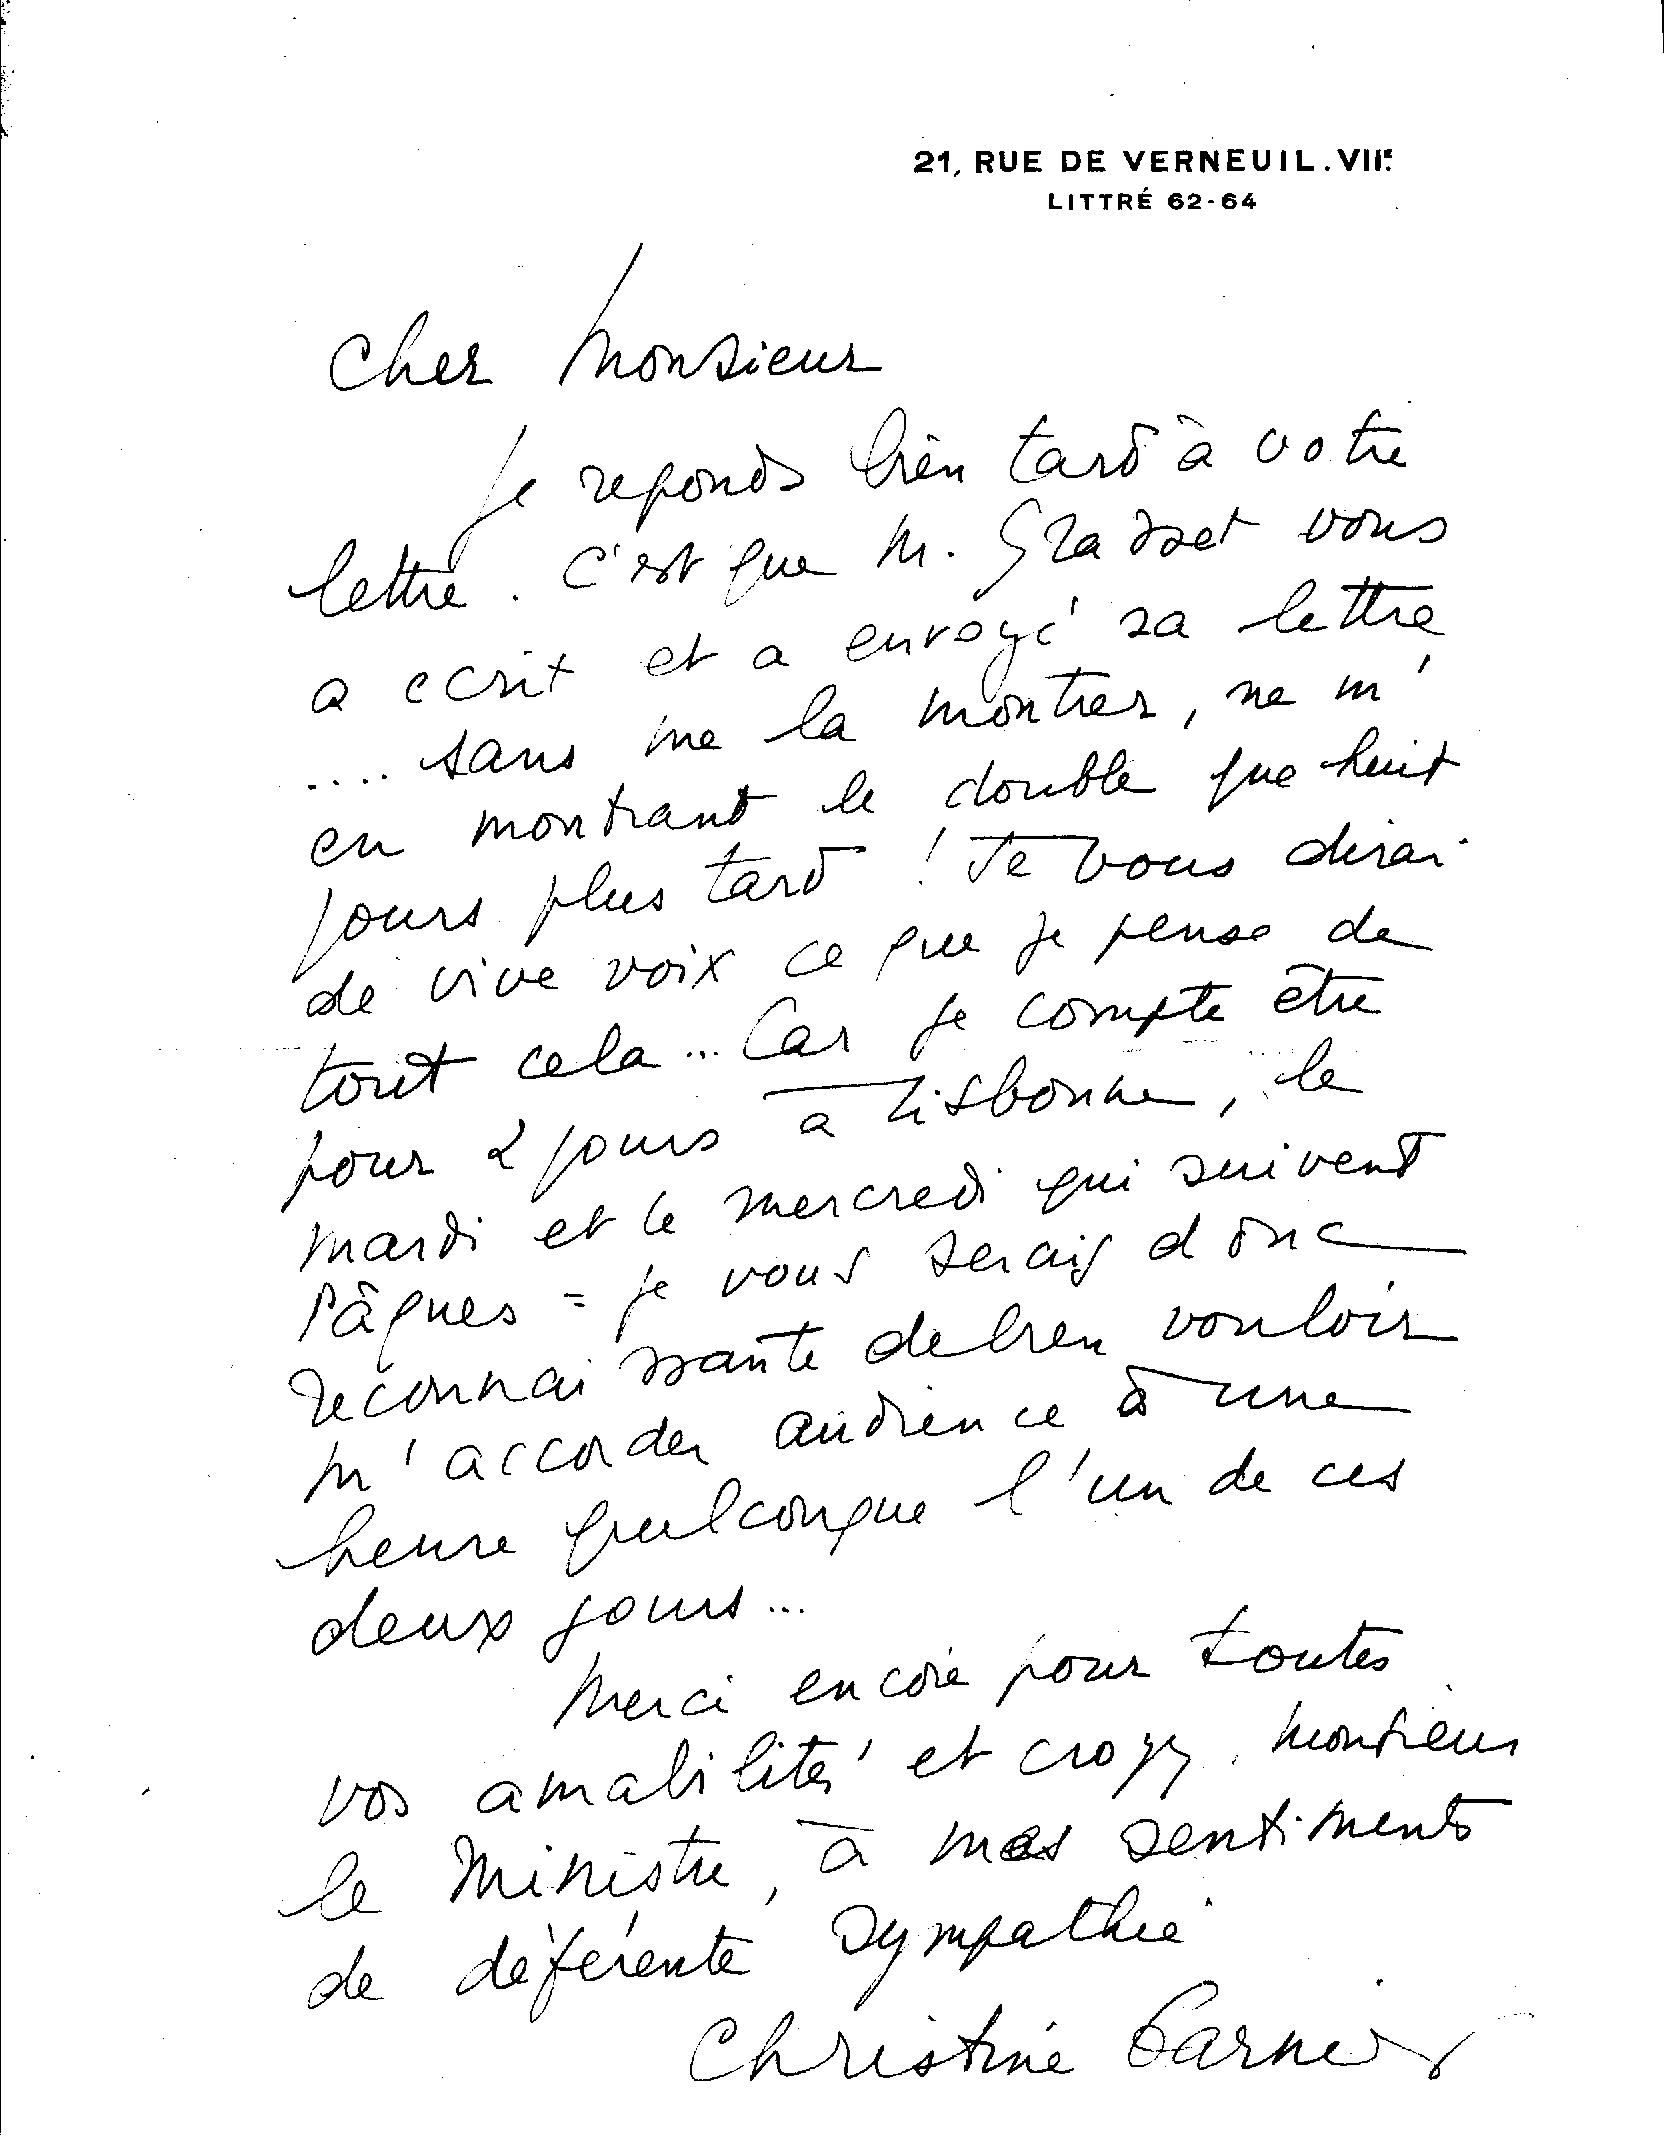 21, RUE DE VERNEUIL. VIIe.
LITTRÉ 62-64
Cher Monsieur
Je reponds bien tard à votre
lettre. C'est que M. Grasset vous
a ecrit et a envoyé sa lettre
.... sans me la montrer, ne m'
en montrant le double que huit
jours plus tard ! Je vous dirai
de vive voix ce que je pense de
tout cela... Car je compte être
pour 2 jours à Lisbonne, le
mardi et le mercredi qui suivent
Pâques = je vous serais donc
reconnaissante de bien vouloir
m'accorder audience à une
heure quelconque l'un de ces
deux jours...
Merci encore pour toutes
vos amabilités et croyez, Monsieur
le Ministre, à mes sentiments
de déférente sympathie
Christine Garnier